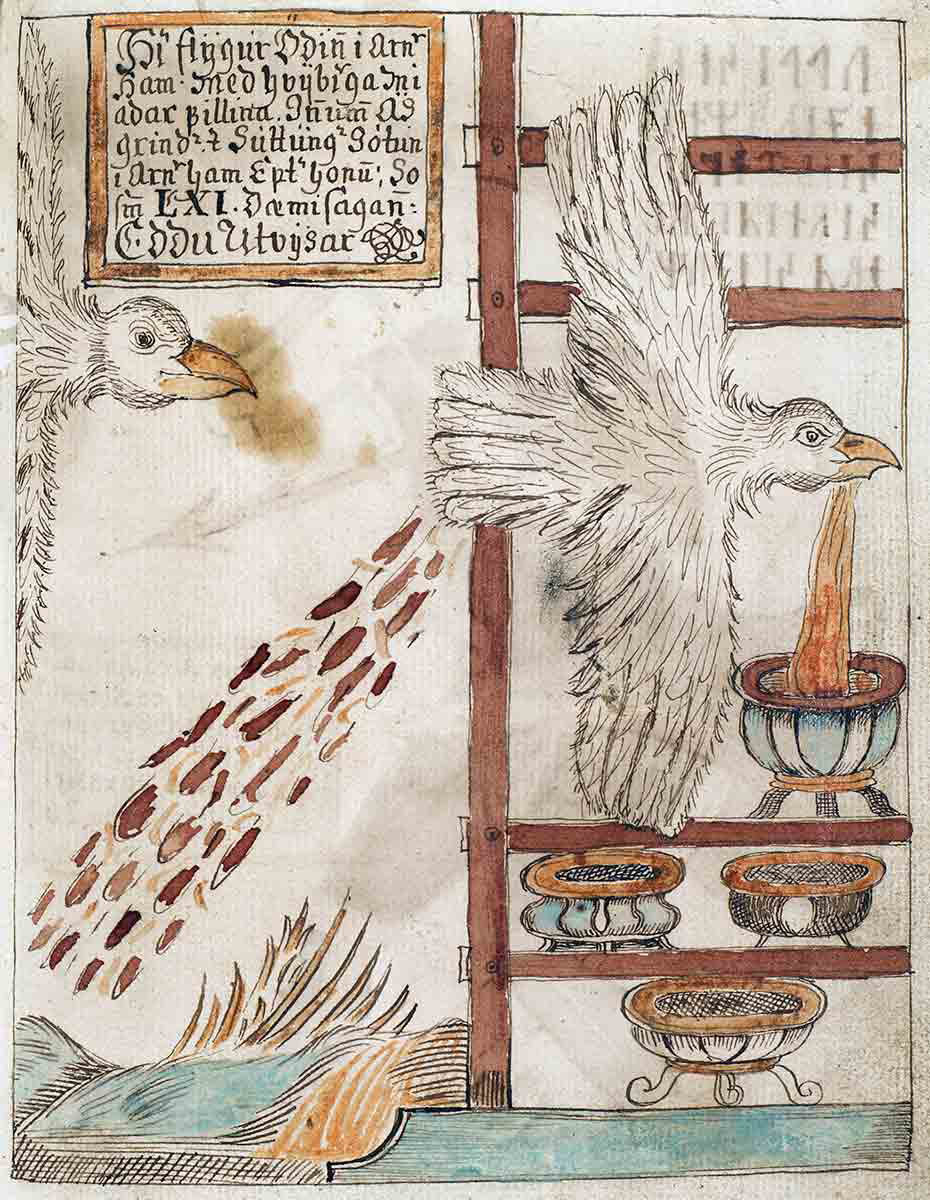 Hr̃ flÿgur Odin̄ i Arnʳ
Ham. Med hvÿbr̃ga Mi
adar pillina. In̄um̄ Ás
grindʳ ⁊ Suttungʳ Jotun
i Arnʳ ham Eptʳ honū; So
sm̄ LXI. Dæmisagan:
E. ddu Utvÿsar